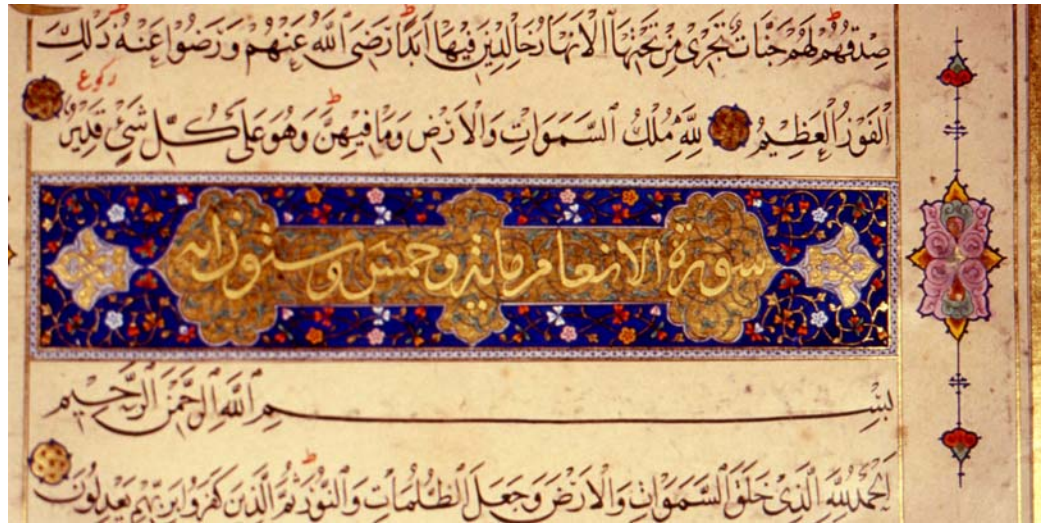 صِدْقُهُمْ لَهُمْ جَنَّاتٌ تَجْرِى مِنْ تَحْتِهَا الْاَنْهَارُ خَالِدِينَ فِيهَا اَبَدًا رَضِىَ اللّٰهُ عَنْهُمْ وَرَضُوا عَنْهُ ذٰلِكَ
ركوع
الْفَوْزُ الْعَظِيمُ لِلّٰهِ مُلْكُ السَّمَوَاتِ وَالْاَرْضِ وَمَا فِيهِنَّ وَهُوَ عَلَى كُلِّ شَىْءٍ قَدِيرٌ
سورة الانعام ماية وخمس وستون اية
بِسْمِ اللّٰهِ الرَّحْمٰنِ الرَّحِيمِ
اَلْحَمْدُ لِلّٰهِ الَّذِى خَلَقَ السَّمَوَاتِ وَالْاَرْضَ وَجَعَلَ الظُّلُمَاتِ وَالنُّورَ ثُمَّ الَّذِينَ كَفَرُوا بِرَبِّهِمْ يَعْدِلُونَ